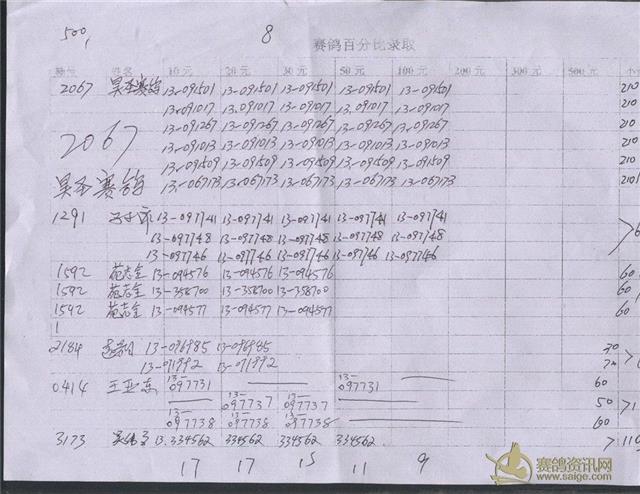 500,
8
赛鸽百分比录取
姓名 10元 20元 30元 50元 100元 200元 300元 500元
2067 昊圣赛鸽 13-091501 13-091501 13-091501 13-091501 13-091501 210
13-091017 13-091017 13-091017 13-091017 13-091017 210
13-091267 13-091267 13-091267 13-091267 13-091267 210
2067 13-091013 13-091013 13-091013 13-091013 13-091013 210
13-091509 13-091509 13-091509 13-091509 13-091509 210
昊圣赛鸽 13-067173 13-067173 13-067173 13-067173 13-067173 210
1291 13-097741 13-097741 13-097741 13-097741 13-097741
13-097748 13-097748 13-097748 13-097748 13-097748
13-097746 13-097746 13-097746 13-097746 13-097746
1592 苑志全 13-094576 13-094576 13-094576 60
1592 苑志全 13-358700 13-358700 13-358700 60
1592 苑志全 13-094577 13-094577 13-094577 60
2184 13-096985 13-096985 30
13-091992 13-091992
0414 王亚东 13-097731 13-097731 60
13-097737 13-097737 50
13-097738 13-097738 13-097738 60
3173 13-334562 334562 334562 334562 110
17 17 15 11 9
赛鸽资讯网
www.saige.com